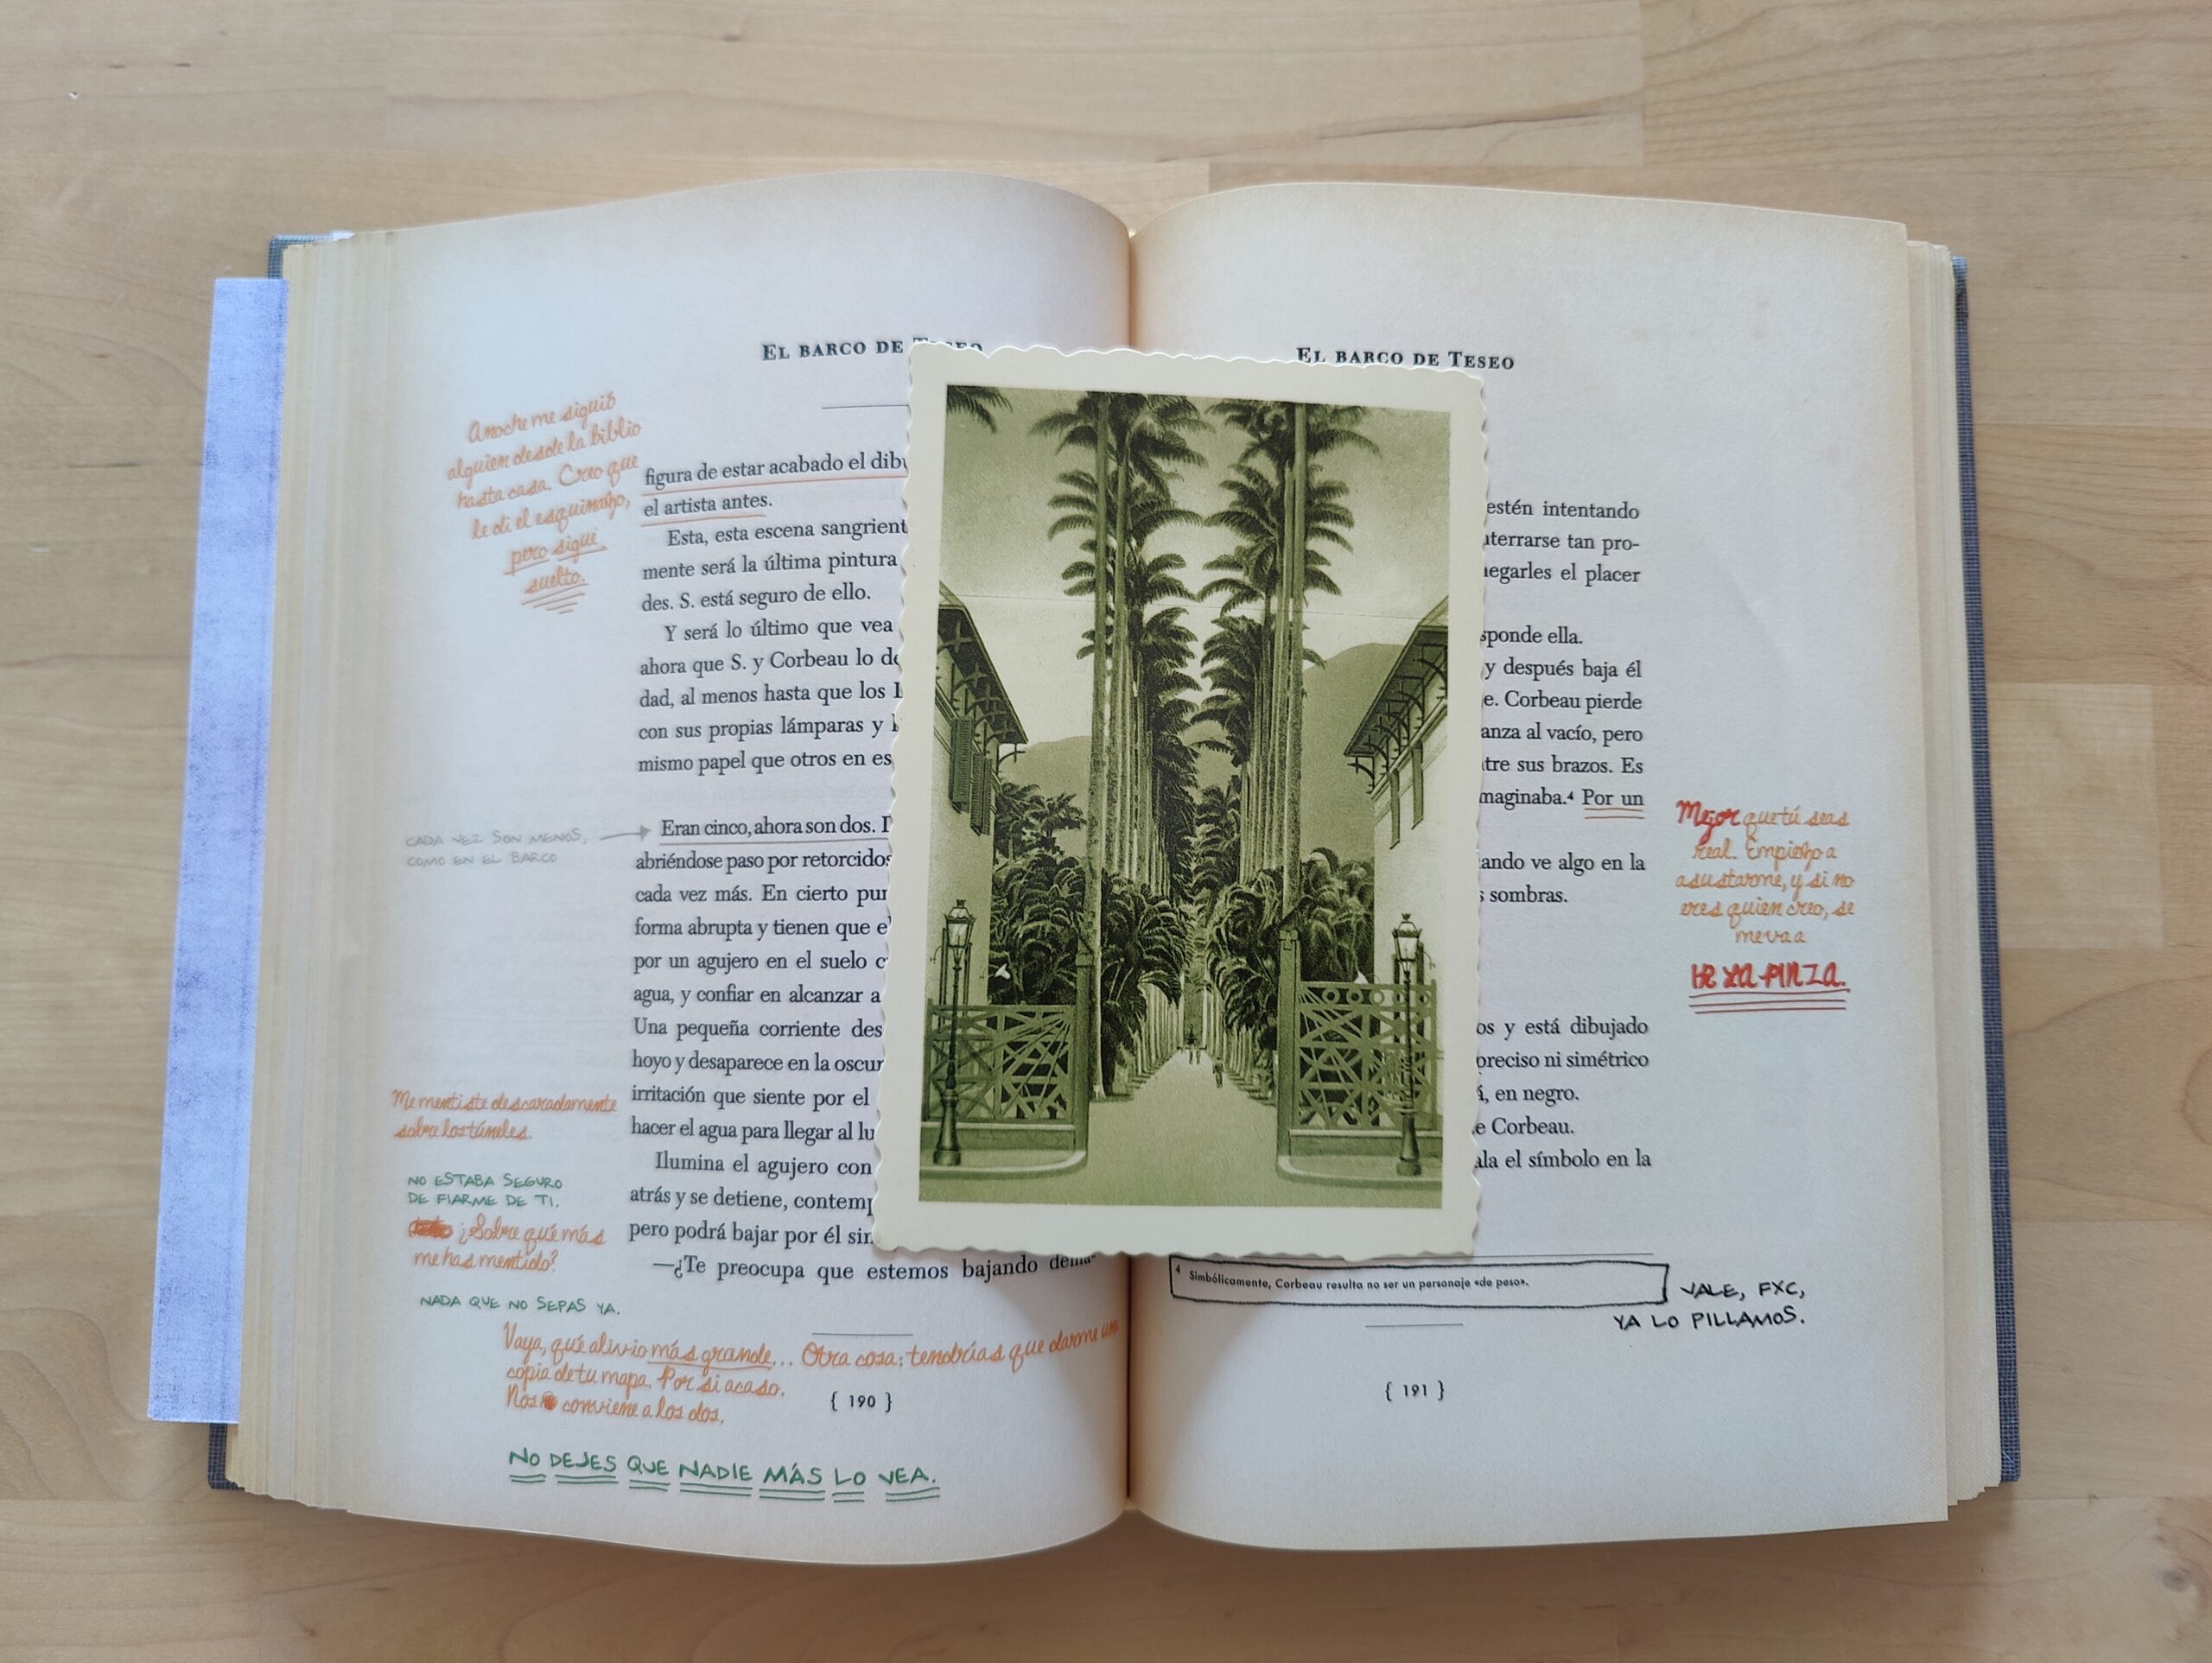 EL BARCO DE TESEO
Anoche me siguió
alguien desde la biblio
hasta casa. Creo que
le di el esquinazo,
pero sigue
suelto.
figura de estar acabado el
el artista antes.
Esta, esta escena
mente será la última pintura
des. S. está seguro de ello.
Y será lo último que vea
ahora que S. y Corbeau lo
dad, al menos hasta que los
con sus propias lámparas y
mismo papel que otros en
CADA VEZ SON MENOS,
COMO EN EL BARCO
Eran cinco, ahora son dos.
abriéndose paso por retorcidos
cada vez más. En cierto
forma abrupta y tienen que
por un agujero en el suelo
agua, y confiar en alcanzar a
Una pequeña corriente
hoyo y desaparece en la
irritación que siente por el
hacer el agua para llegar al
Ilumina el agujero con
atrás y se detiene,
pero podrá bajar por él
—¿Te preocupa que estemos bajando
Me mentiste descaradamente
sobre los túneles.
NO ESTABA SEGURO
DE FIARME DE TI.
¿Sobre qué más
me has mentido?
NADA QUE NO SEPAS YA.
Vaya, qué alivio más grande... Otra cosa: tendrías que darme una
copia de tu mapa. Por si acaso.
Nos conviene a los dos.
{ 190 }
NO DEJES QUE NADIE MÁS LO VEA.
EL BARCO DE TESEO
estén intentando
tan pro-
el placer
ella.
y después baja él
Corbeau pierde
al vacío, pero
sus brazos. Es
Por un
ve algo en la
sombras.
y está dibujado
preciso ni simétrico
en negro.
Corbeau.
el símbolo en la
Mejor que tú seas
real. Empiezo a
asustarme, y si no
eres quien creo, se
me va a
DE LA PINZA.
4 Simbólicamente, Corbeau resulta no ser un personaje «de peso».
VALE, FXC,
YA LO PILLAMOS.
{ 191 }